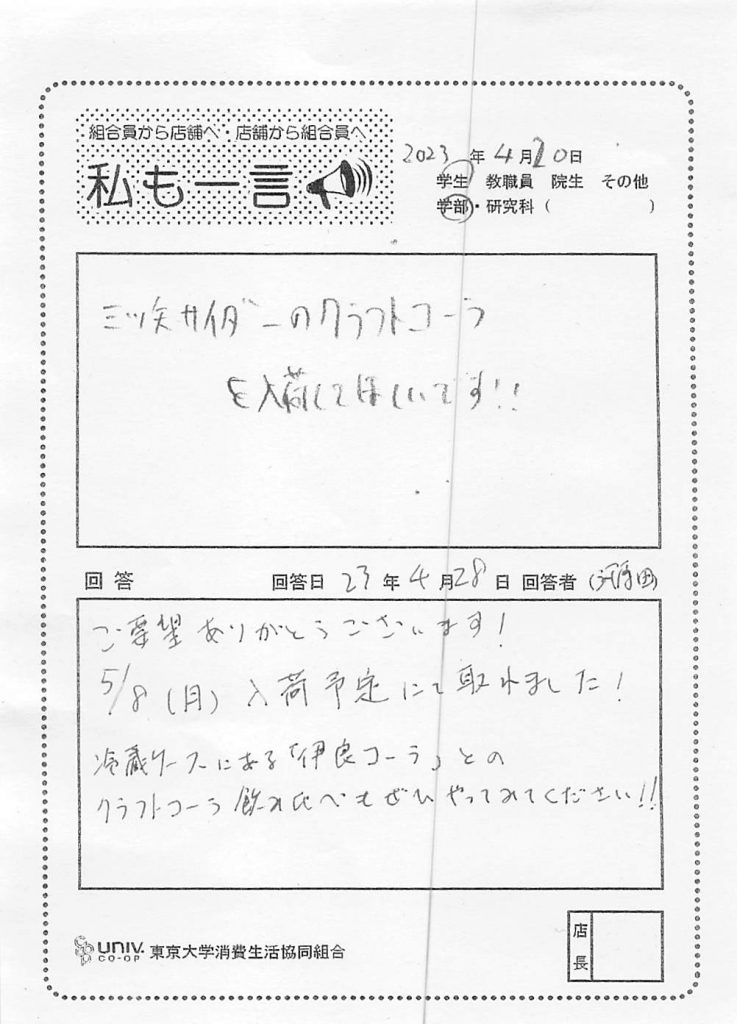 組合員から店舗へ・店舗から組合員へ
私も一言
2023年4月20日
学生 教職員 院生 その他
学部・研究科( )
三ツ矢サイダーのクラフトコーラ
を入荷してほしいです!!
回答 回答日 23年4月28日 回答者(河原田)
ご要望ありがとうございます!
5/8(月)入荷予定にて取れました!
冷蔵ケースにある「伊良コーラ」との
クラフトコーラ飲み比べもぜひやってみてください!!
UNIV. CO-OP 東京大学消費生活協同組合
店長